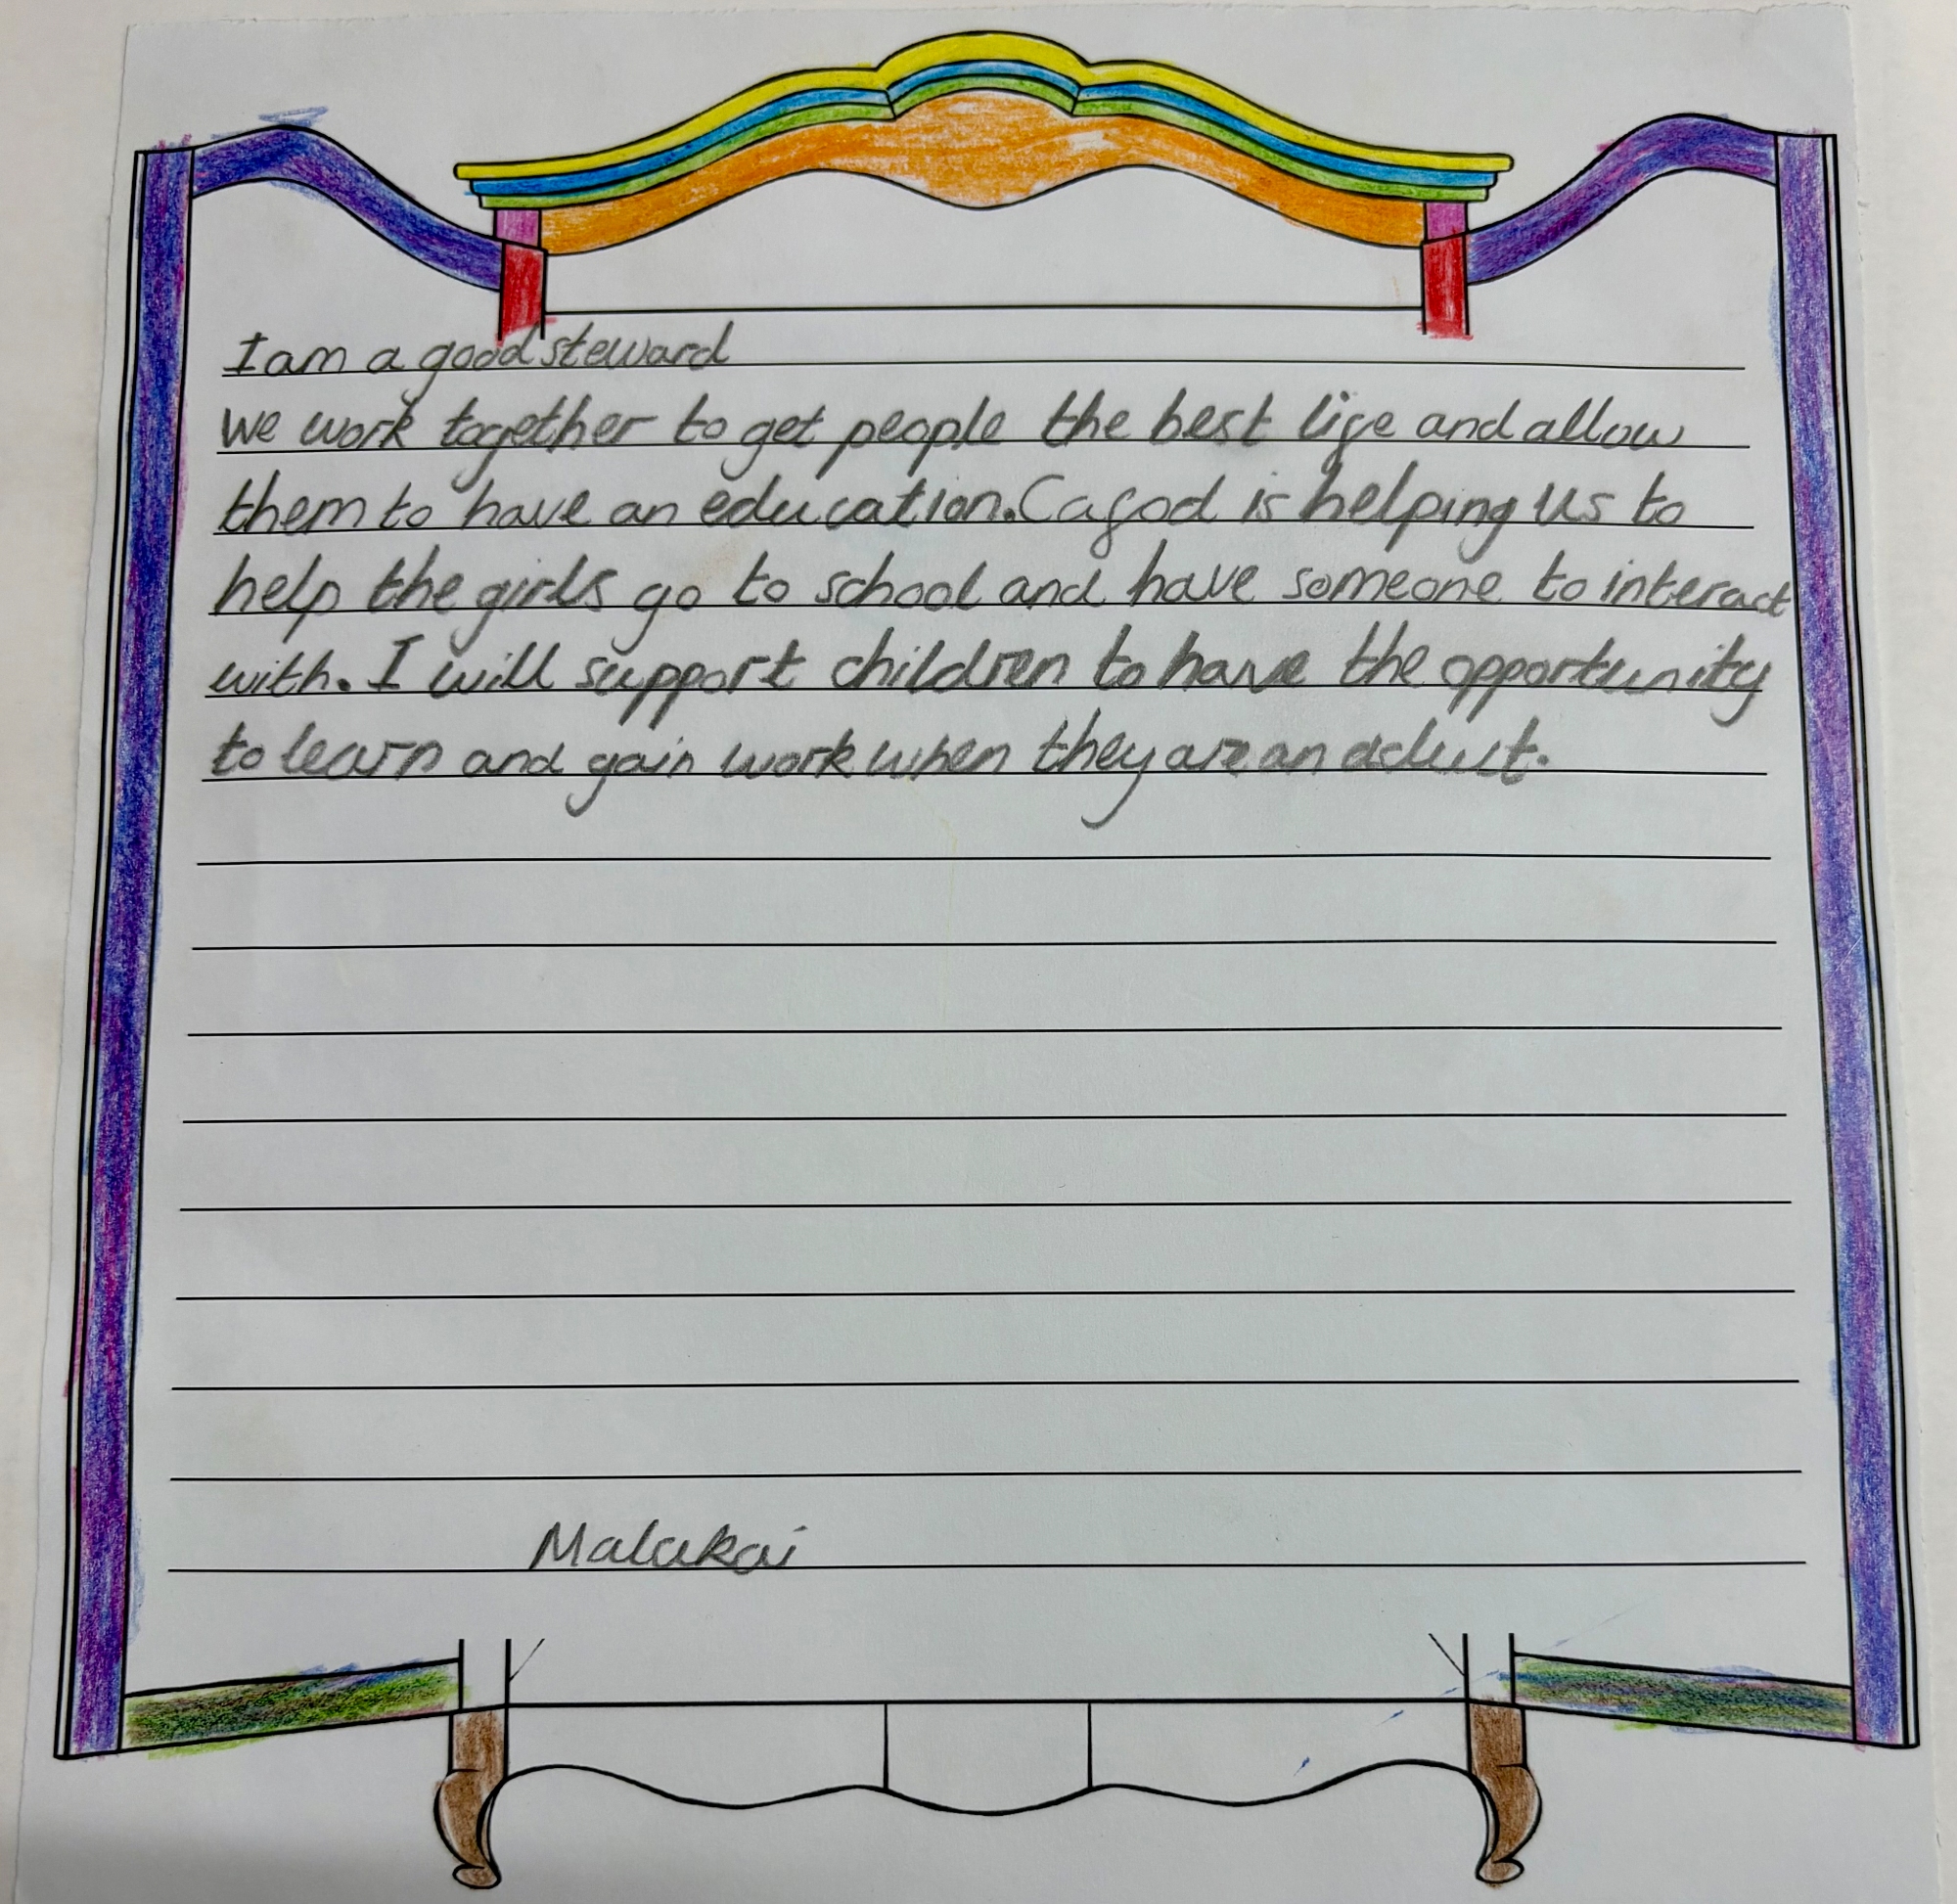 I am a good steward
we work together to get people the best life and allow
them to have an education. Cafod is helping us to
help the girls go to school and have someone to interact
with. I will support children to have the opportunity
to learn and gain work when they are an adult.
Malakai